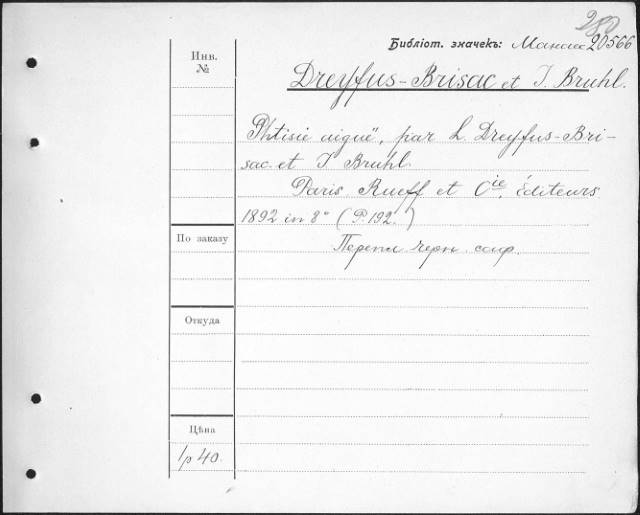 280
Библіот. значекъ: 20566
Инв.
№
Dreyfus-Brisac et I. Bruhl.
Phtisie aiguë, par L. Dreyfus-Bri-
sac et I Bruhl
Paris Rueff et Cie, Éditeurs
1892 in 8° (P. 192.)
По заказу
Перепл. черн. саф.
Откуда
Цѣна
1р 40.